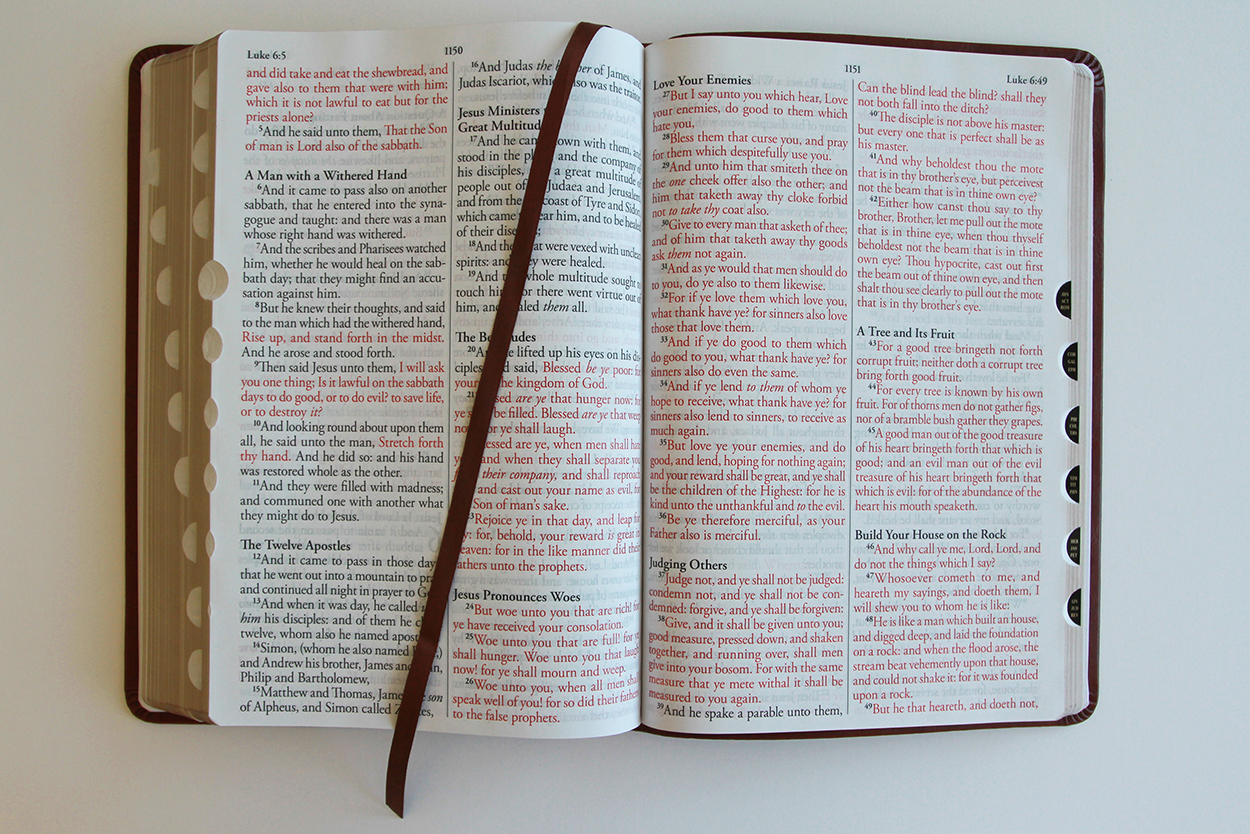 Luke 6:5
1150
and did take and eat the shewbread, and
gave also to them that were with him;
which it is not lawful to eat but for the
priests alone?
5And he said unto them, That the Son
of man is Lord also of the sabbath.
A Man with a Withered Hand
6And it came to pass also on another
sabbath, that he entered into the syna-
gogue and taught: and there was a man
whose right hand was withered.
7And the scribes and Pharisees watched
him, whether he would heal on the sab-
bath day; that they might find an accu-
sation against him.
8But he knew their thoughts, and said
to the man which had the withered hand,
Rise up, and stand forth in the midst.
And he arose and stood forth.
9Then said Jesus unto them, I will ask
you one thing; Is it lawful on the sabbath
days to do good, or to do evil? to save life,
or to destroy it?
10And looking round about upon them
all, he said unto the man, Stretch forth
thy hand. And he did so: and his hand
was restored whole as the other.
11And they were filled with madness;
and communed one with another what
they might do to Jesus.
The Twelve Apostles
12And it came to pass in those day
that he went out into a mountain to pra
and continued all night in prayer to G
13And when it was day, he called
him his disciples: and of them he ch
twelve, whom also he named apost
14Simon, (whom he also named
and Andrew his brother, James and
Philip and Bartholomew,
15Matthew and Thomas, Jame son
of Alpheus, and Simon called Z es,
16And Judas the b her of James, and
Judas Iscariot, whic also was the traitor.
Jesus Ministers
Great Multitud
17And he ca own with them, and
stood in the pl and the company of
his disciples, a great multitude of
people out of Judaea and Jerusalem,
and from the coast of Tyre and Sidon,
which came ear him, and to be healed
of their dise s;
18And the at were vexed with unclean
spirits: and ey were healed.
19And t whole multitude sought to
touch him or there went virtue out of
him, and aled them all.
The Be udes
20An e lifted up his eyes on his dis-
ciples d said, Blessed be ye poor: for
your the kingdom of God.
21 ssed are ye that hunger now: for
ye s be filled. Blessed are ye that weep
no or ye shall laugh.
lessed are ye, when men shall hate
y and when they shall separate you
their company, and shall reproach
and cast out your name as evil, for
Son of man's sake.
Rejoice ye in that day, and leap for
y: for, behold, your reward is great in
eaven: for in the like manner did their
athers unto the prophets.
Jesus Pronounces Woes
24But woe unto you that are rich! for
ye have received your consolation.
25Woe unto you that are full! for ye
shall hunger. Woe unto you that laugh
now! for ye shall mourn and weep.
26Woe unto you, when all men shall
speak well of you! for so did their fathers
to the false prophets.
1151
Luke 6:49
Love Your Enemies
27But I say unto you which hear, Love
your enemies, do good to them which
hate you,
28Bless them that curse you, and pray
for them which despitefully use you.
29And unto him that smiteth thee on
the one cheek offer also the other; and
him that taketh away thy cloke forbid
not to take thy coat also.
30Give to every man that asketh of thee;
and of him that taketh away thy goods
ask them not again.
31And as ye would that men should do
to you, do ye also to them likewise.
32For if ye love them which love you,
what thank have ye? for sinners also love
those that love them.
33And if ye do good to them which
do good to you, what thank have ye? for
sinners also do even the same.
34And if ye lend to them of whom ye
hope to receive, what thank have ye? for
sinners also lend to sinners, to receive as
much again.
35But love ye your enemies, and do
good, and lend, hoping for nothing again;
and your reward shall be great, and ye shall
be the children of the Highest: for he is
kind unto the unthankful and to the evil.
36Be ye therefore merciful, as your
Father also is merciful.
Judging Others
37Judge not, and ye shall not be judged:
condemn not, and ye shall not be con-
demned: forgive, and ye shall be forgiven:
38Give, and it shall be given unto you;
good measure, pressed down, and shaken
together, and running over, shall men
give into your bosom. For with the same
measure that ye mete withal it shall be
measured to you again.
39And he spake a parable unto them,
Can the blind lead the blind? shall they
not both fall into the ditch?
40The disciple is not above his master:
but every one that is perfect shall be as
his master.
41And why beholdest thou the mote
that is in thy brother's eye, but perceivest
not the beam that is in thine own eye?
42Either how canst thou say to thy
brother, Brother, let me pull out the mote
that is in thine eye, when thou thyself
beholdest not the beam that is in thine
own eye? Thou hypocrite, cast out first
the beam out of thine own eye, and then
shalt thou see clearly to pull out the mote
that is in thy brother's eye.
A Tree and Its Fruit
43For a good tree bringeth not forth
corrupt fruit; neither doth a corrupt tree
bring forth good fruit.
44For every tree is known by his own
fruit. For of thorns men do not gather figs,
nor of a bramble bush gather they grapes.
45A good man out of the good treasure
of his heart bringeth forth that which is
good; and an evil man out of the evil
treasure of his heart bringeth forth that
which is evil: for of the abundance of the
heart his mouth speaketh.
Build Your House on the Rock
46And why call ye me, Lord, Lord, and
do not the things which I say?
47Whosoever cometh to me, and
heareth my sayings, and doeth them, I
will shew you to whom he is like:
48He is like a man which built an house,
and digged deep, and laid the foundation
on a rock: and when the flood arose, the
stream beat vehemently upon that house,
and could not shake it: for it was founded
upon a rock.
49But he that heareth, and doeth not,